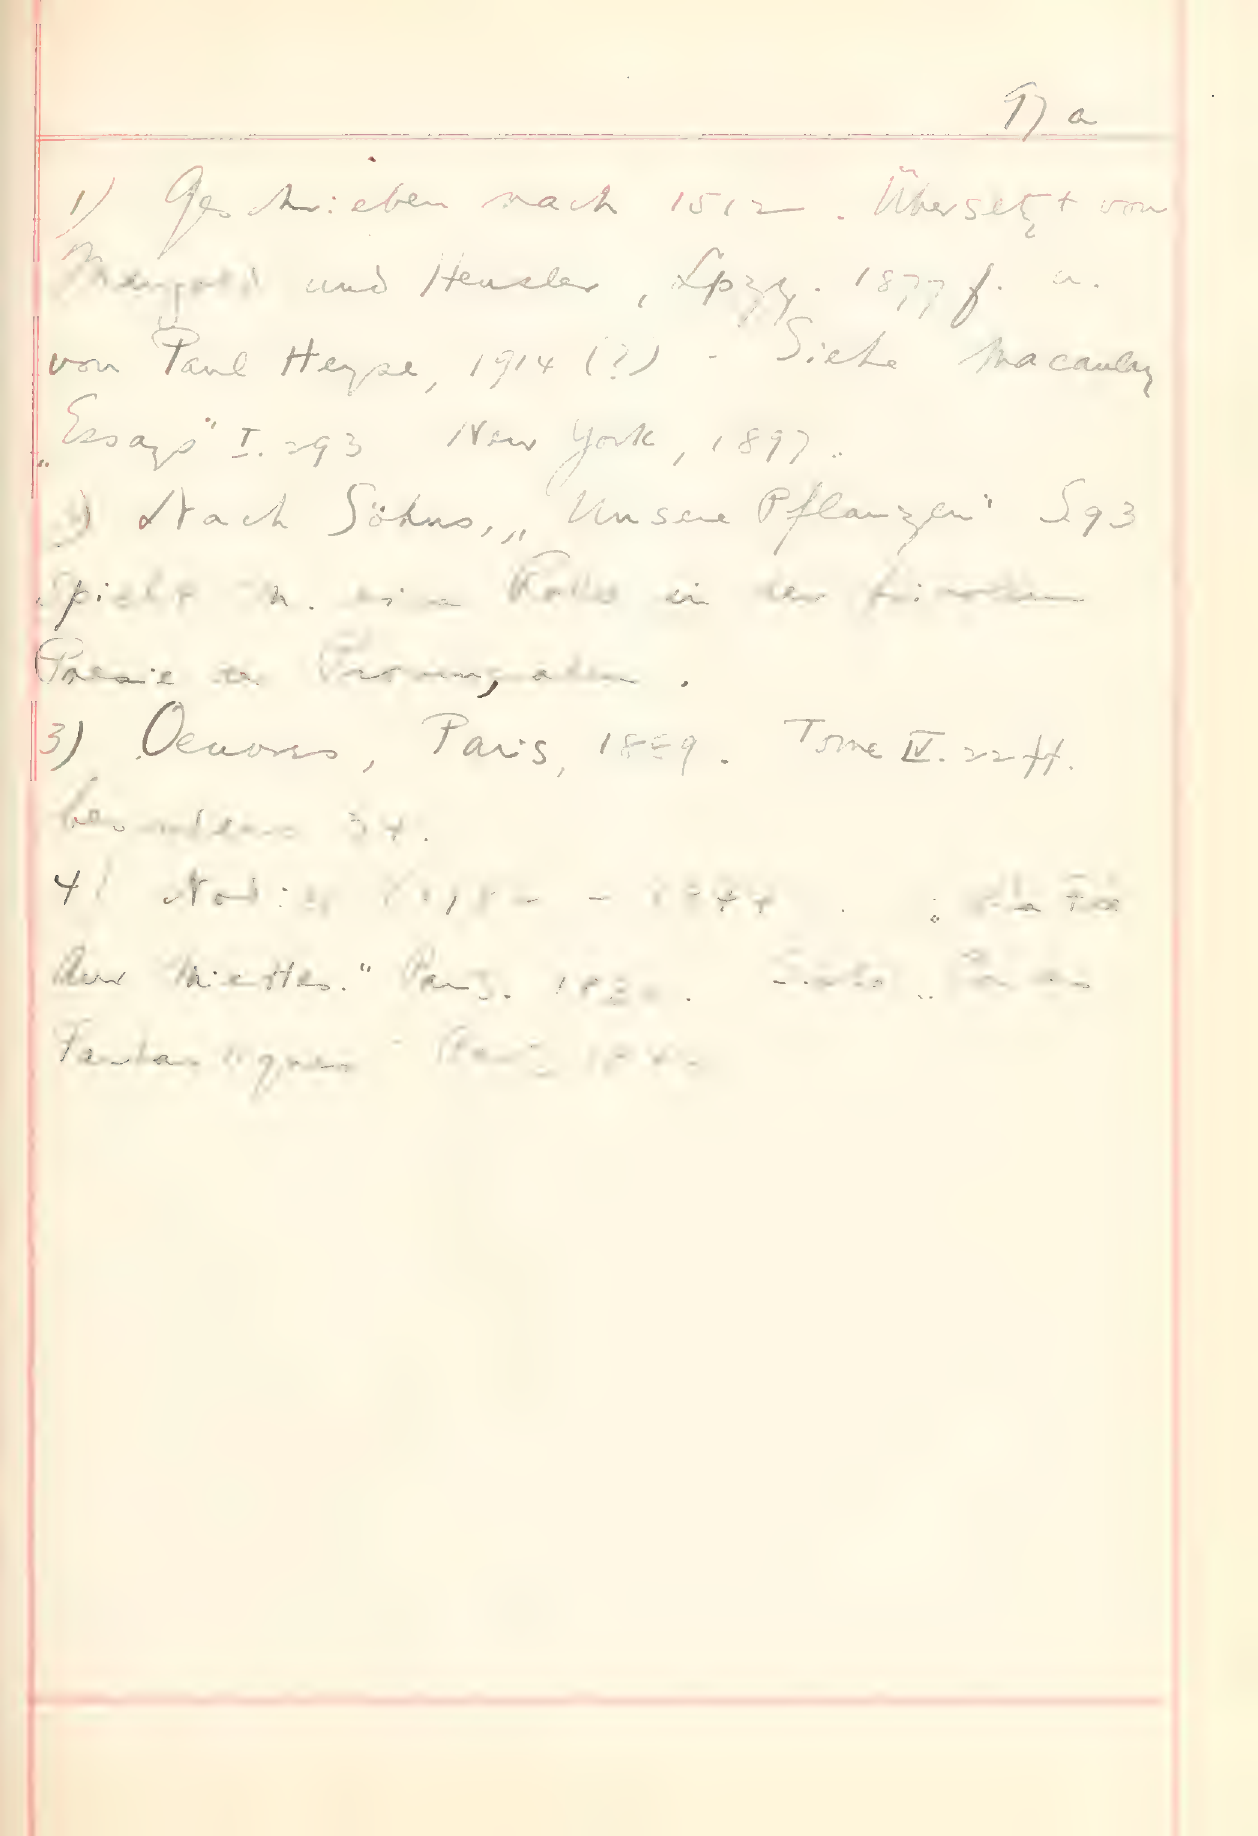 97 a
1) Geschrieben nach 1512. Übersetzt von
und Heusler, Lpzg. 1877 f. u.
von Paul Heyse, 1914 (?) - Siehe Macaulay
„Essays" I. 293 New York, 1897.
2) Nach Söhns, „Unsere Pflanzen" S 93
spielt M. eine Rolle in der
Poesie der Provenzalen.
3) Oeuvres, Paris, 1889. Tome IV. 22 ff.
besonders 34.
4) Nodier „La Fée
aux Miettes." Paris.
Fantastiques" Paris